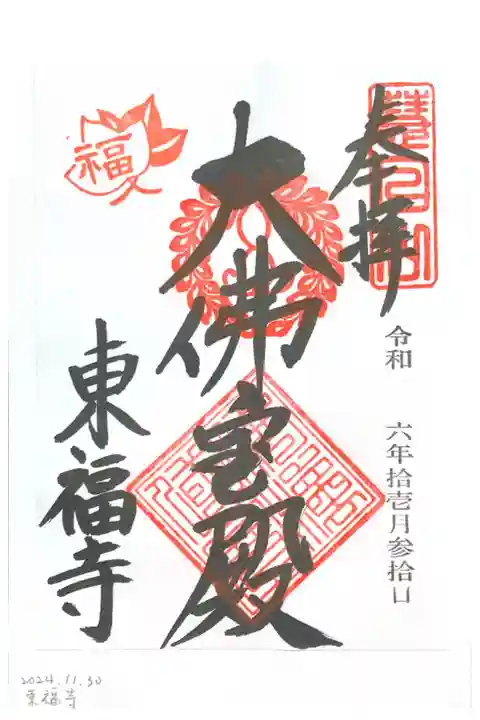 奉拝
令和 六年拾壱月参拾日
大佛宝殿
福
東福寺
2024.11.30
東福寺